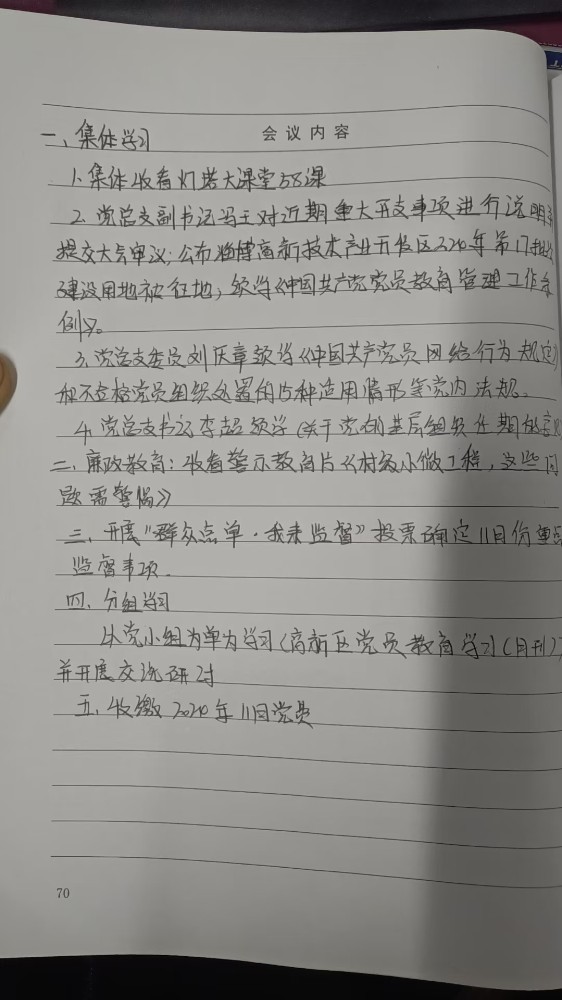 会议内容
一、集体学习
1.集体收看灯塔大课堂58课
2.党总支副书记冯玉对近期重大开支事项进行说明
提交大会审议;公布淄博高新技术产业开发区2024年第17批次
建设用地被征地;领学《中国共产党党员教育管理工作条
例》。
3.党总支委员刘庆章领学《中国共产党员网络行为规定》
和不合格党员组织处置的15种适用情形等党内法规。
4.党总支书记李超领学《关于党的基层组织任期的意见
二、廉政教育:收看警示教育片《村级小微工程,这些问
题需警惕》
三、开展"群众点单·我来监督"投票确定11月份重点
监督事项.
四、分组学习
以党小组为单为学习《高新区党员教育学习(月刊)》
并开展交流研讨
五、收缴2024年11月党费
70